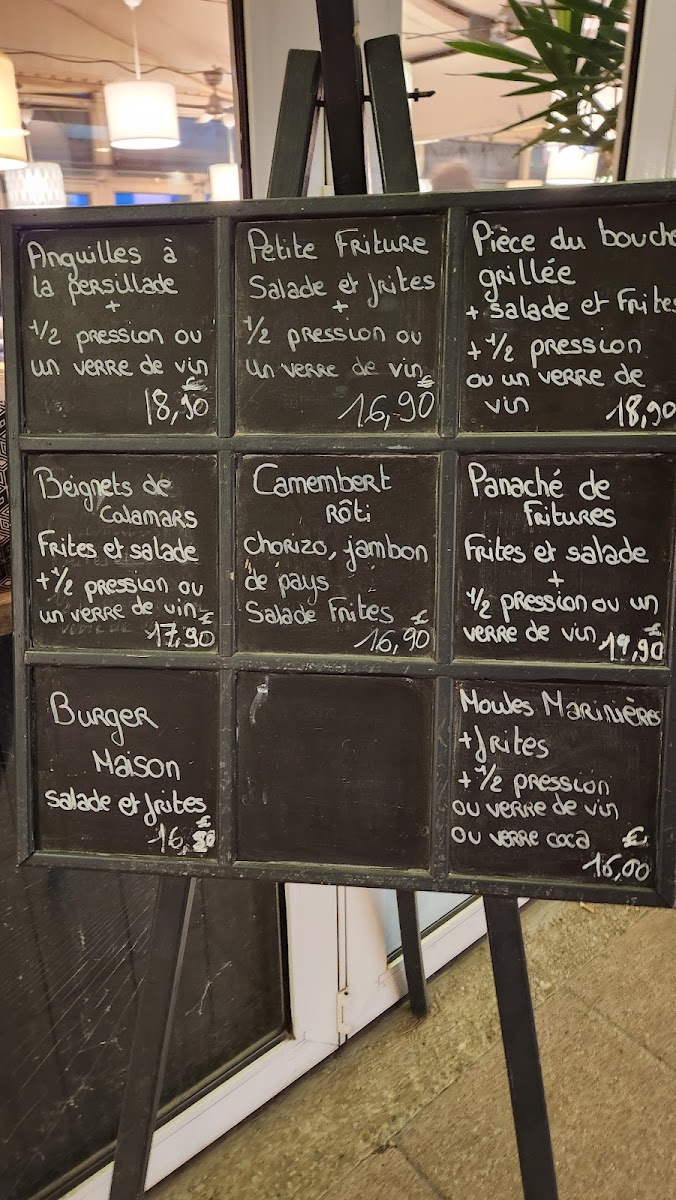 Anguilles à
la persillade
+
1/2 pression ou
un verre de vin
€
18,90
Petite Friture
Salade et frites
+
1/2 pression ou
un verre de vin
€
16,90
Pièce du bouche
grillée
+ salade et Frites
+ 1/2 pression
ou un verre de
vin
18,90
Beignets de
Calamars
Frites et salade
+ 1/2 pression ou
un verre de vin
€
17,90
Camembert
Rôti
chorizo, jambon
de pays
Salade Frites
€
16,90
Panaché de
Fritures
Frites et salade
+
1/2 pression ou un
verre de vin
€
19,90
Burger
Maison
salade et frites
€
Moules Marinières
+ frites
+ 1/2 pression
ou verre de vin
ou verre coca
€
16,00